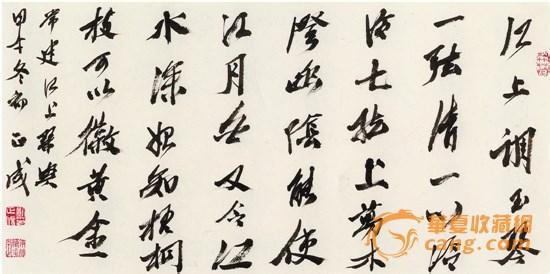 江上調玉琴
一弦清一心泠
泠七弦上萬木
澄幽陰能使
江月白又令江
水深始知梧桐
枝可以徽黄金
常建江上琴興
甲午冬初正成
华夏收藏网
cang.com